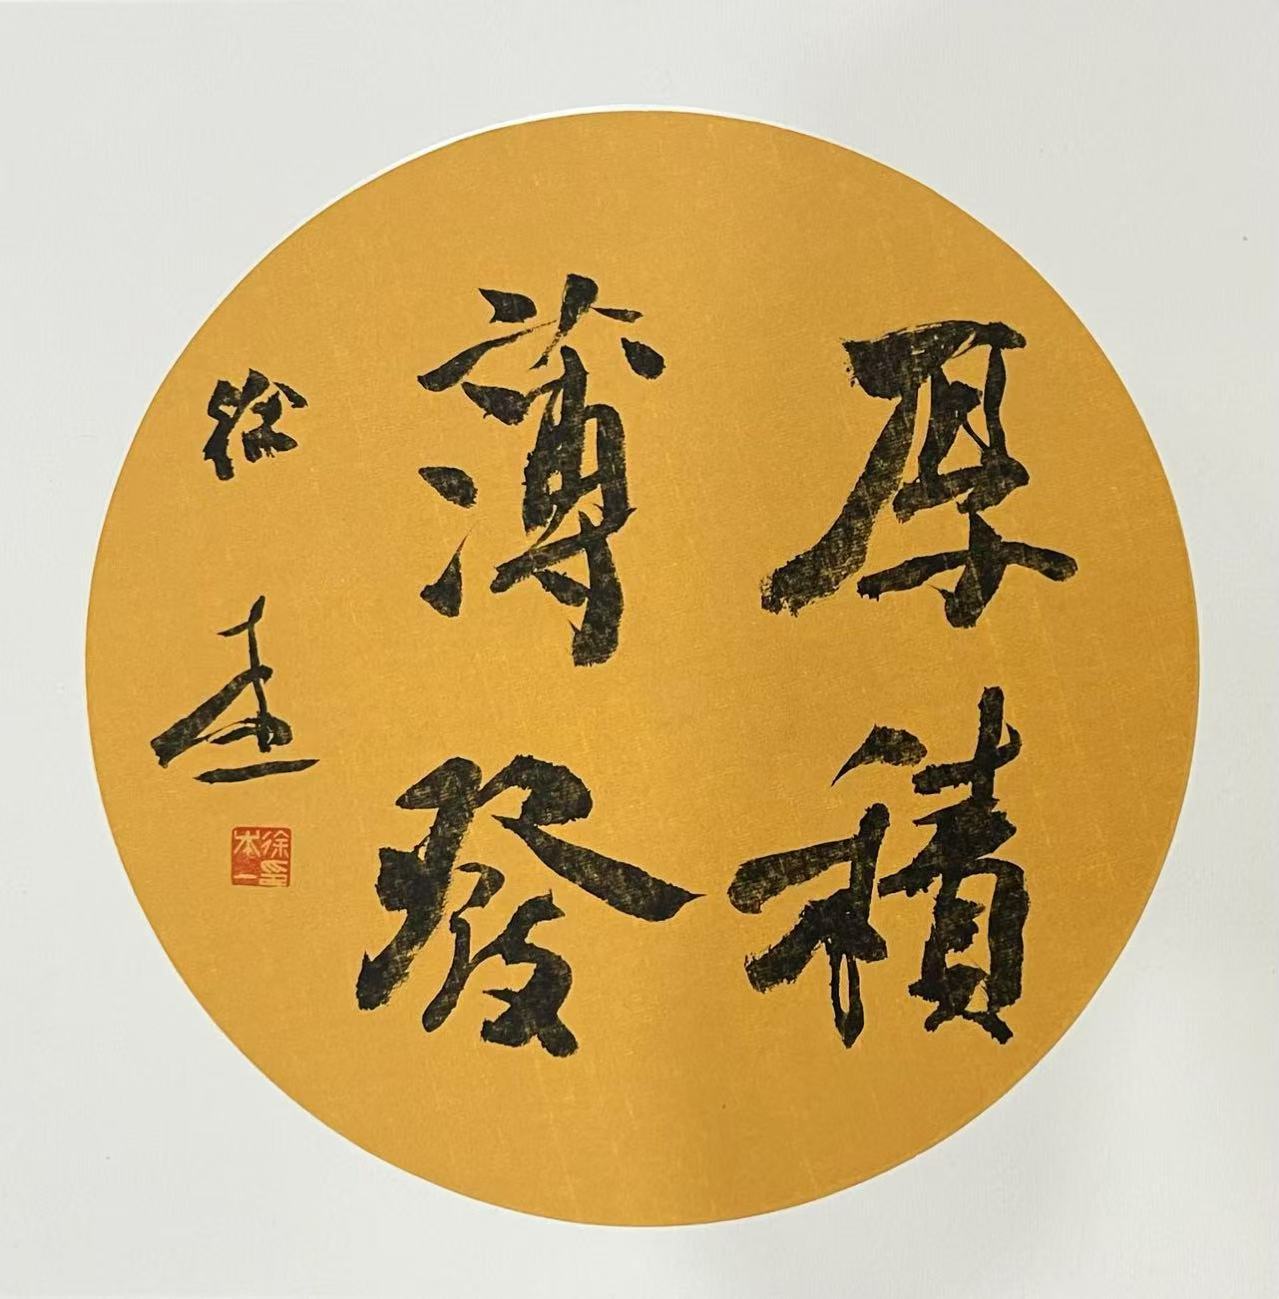 厚積
薄發
徐本一
徐本一印